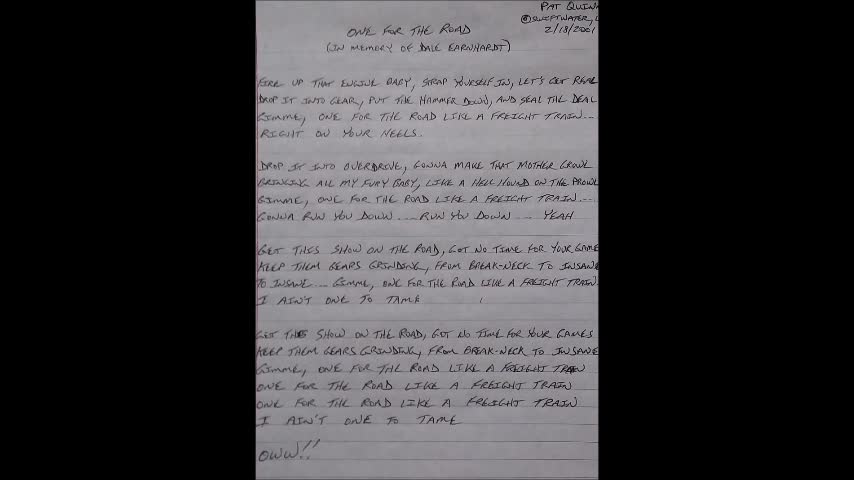 PAT QUINN
@SWIFTWATER,
2/18/2001
ONE FOR THE ROAD
(IN MEMORY OF DALE EARNHARDT)
FIRE UP THAT ENGINE BABY, STRAP YOURSELF IN, LET'S GET REAL
DROP IT INTO GEAR, PUT THE HAMMER DOWN, AND SEAL THE DEAL
GIMME, ONE FOR THE ROAD LIKE A FREIGHT TRAIN...
RIGHT ON YOUR HEELS.
DROP IT INTO OVERDRIVE, GONNA MAKE THAT MOTHER GROWL
BRINGING ALL MY FURY BABY, LIKE A HELL HOUND ON THE PROWL
GIMME, ONE FOR THE ROAD LIKE A FREIGHT TRAIN....
GONNA RUN YOU DOWN.... RUN YOU DOWN.... YEAH
GET THIS SHOW ON THE ROAD, GOT NO TIME FOR YOUR GAME
KEEP THEM GEARS GRINDING, FROM BREAK-NECK TO INSANE
TO INSANE.... GIMME, ONE FOR THE ROAD LIKE A FREIGHT TRAIN.
I AIN'T ONE TO TAME
GET THIS SHOW ON THE ROAD, GOT NO TIME FOR YOUR GAMES
KEEP THEM GEARS GRINDING, FROM BREAK-NECK TO INSANE
GIMME, ONE FOR THE ROAD LIKE A FREIGHT TRAIN
ONE FOR THE ROAD LIKE A FREIGHT TRAIN
ONE FOR THE ROAD LIKE A FREIGHT TRAIN
I AIN'T ONE TO TAME
OWW!!